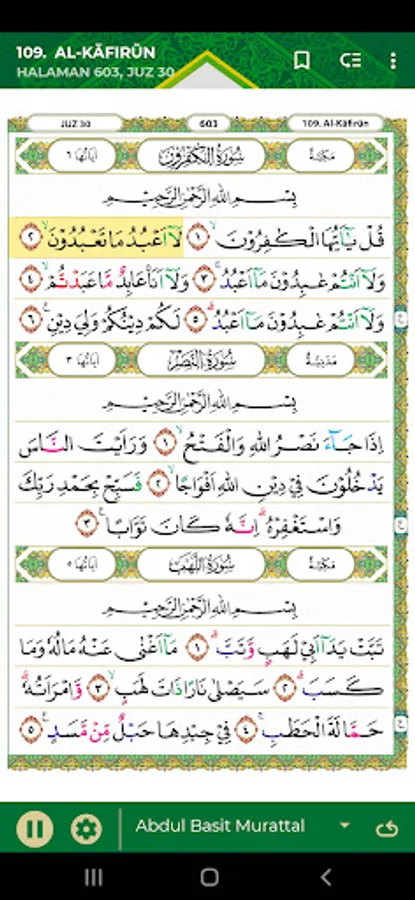 109. AL-KĀFIRŪN
HALAMAN 603, JUZ 30
JUZ 30
603
109. Al-Kāfirūn
مَكِّيَّةٌ سُوْرَةُ الْكٰفِرُوْنَ اٰيَاتُهَا ٦
بِسْمِ اللّٰهِ الرَّحْمٰنِ الرَّحِيْمِ
قُلْ يٰٓاَيُّهَا الْكٰفِرُوْنَۙ ١ لَآ اَعْبُدُ مَا تَعْبُدُوْنَۙ ٢
وَلَآ اَنْتُمْ عٰبِدُوْنَ مَآ اَعْبُدُۚ ٣ وَلَآ اَنَا۠ عَابِدٌ مَّا عَبَدْتُّمْۙ ٤
وَلَآ اَنْتُمْ عٰبِدُوْنَ مَآ اَعْبُدُۗ ٥ لَكُمْ دِيْنُكُمْ وَلِيَ دِيْنِࣖ ٦
مَدَنِيَّةٌ سُوْرَةُ النَّصْرِ اٰيَاتُهَا ٣
بِسْمِ اللّٰهِ الرَّحْمٰنِ الرَّحِيْمِ
اِذَا جَاۤءَ نَصْرُ اللّٰهِ وَالْفَتْحُۙ ١ وَرَاَيْتَ النَّاسَ
يَدْخُلُوْنَ فِيْ دِيْنِ اللّٰهِ اَفْوَاجًاۙ ٢ فَسَبِّحْ بِحَمْدِ رَبِّكَ
وَاسْتَغْفِرْهُۗ اِنَّهٗ كَانَ تَوَّابًاࣖ ٣
مَكِّيَّةٌ سُوْرَةُ اللَّهَبِ اٰيَاتُهَا ٥
بِسْمِ اللّٰهِ الرَّحْمٰنِ الرَّحِيْمِ
تَبَّتْ يَدَآ اَبِيْ لَهَبٍ وَّتَبَّۗ ١ مَآ اَغْنٰى عَنْهُ مَالُهٗ وَمَا
كَسَبَۗ ٢ سَيَصْلٰى نَارًا ذَاتَ لَهَبٍۙ ٣ وَّامْرَاَتُهٗۗ
حَمَّالَةَ الْحَطَبِۚ ٤ فِيْ جِيْدِهَا حَبْلٌ مِّنْ مَّسَدٍࣖ ٥
Abdul Basit Murattal